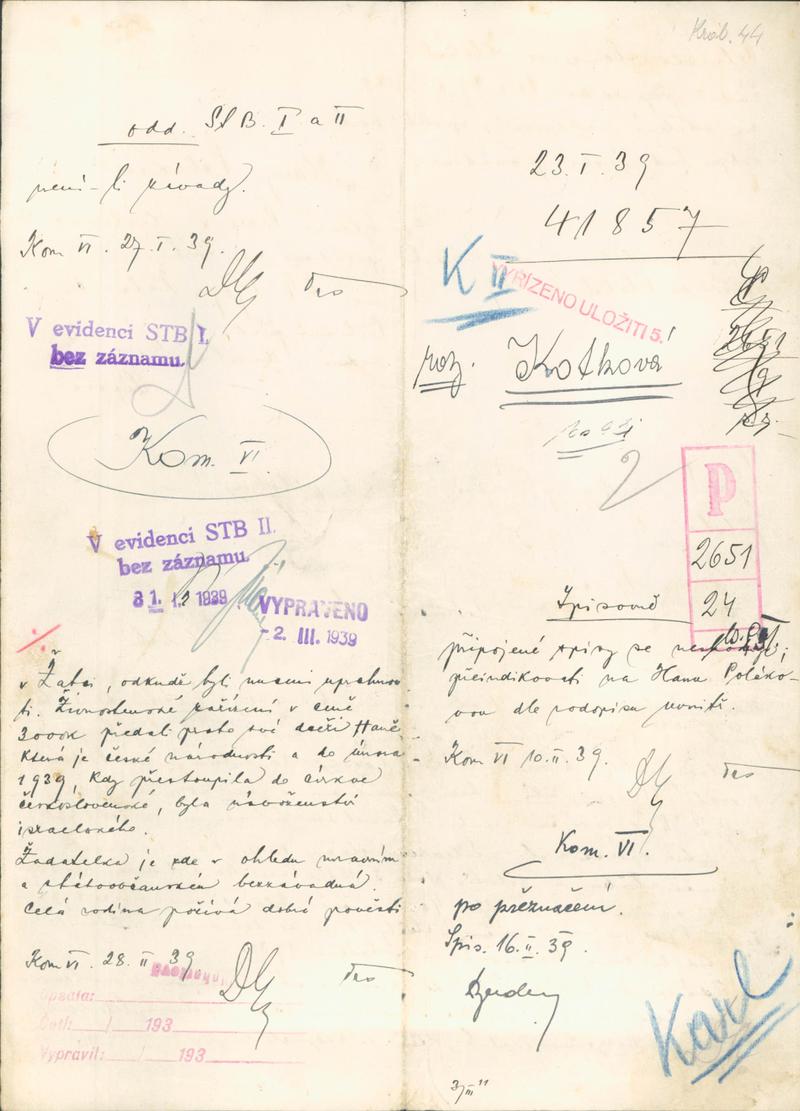 odd. StB. I a II
není-li závady.
Kom VI. 27. I. 39.
V evidenci STB I.
bez záznamu.
Kom. VI.
V evidenci STB II.
bez záznamu.
31. 1939
VYPRAVENO
- 2. III. 1939
v Žatci, odkudž byli nuceni uprchnou
ti. Živnostenské zařízení v ceně
3000K předali proto své dceři Haně
která je české národnosti a do února
1939, kdy přestoupila do církve
československé, byla náboženství
israelského.
Žadatelka je zde v ohledu mravním
a státoobčanském bezzávadná.
Celá rodina požívá dobré pověsti
Kom VI. 28. II 39
Opsala:
Četl: / 193
Vypravil: / 193
Král. 44
23. I. 39
41857
K II
VYŘÍZENO ULOŽITI 5.
roz. Kotková
P
2651
24
Spisovně
připojené spisy se
přeindikovati na Hanu Poláko-
vou dle rodopisu
Kom VI 10. II. 39.
Kom. VI.
po přeznačení.
Spis. 16. II. 39.
Karl